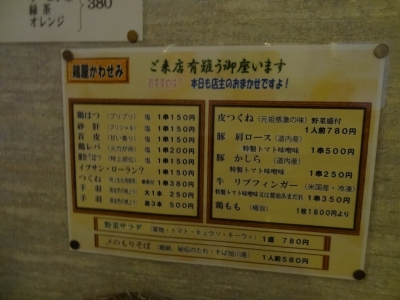 緑茶 380
オレンジ
鶏屋かわせみ
ご来店有難う御座います
本日も店主のおまかせですよ!
鶏はつ (プリプリ) 塩 1串150円
砂肝 (プリシャキ) 塩 1串150円
首皮 (甘い香り) 塩 1串150円
鶏レバ (火力が命) 塩 1串150円
(特上部位) 塩 1串150円
イブサン・ローラン? 1串150円
つくね 1串380円
手羽 大1本 250円
手羽 並3本 500円
皮つくね (元祖感激の味) 野菜盛付
1人前780円
豚肩ロース (道内産)
特製トマト味噌味 1串500円
豚かしら (道内産)
特製トマト味噌味 1串250円
牛リブフィンガー (米国産・冷凍)
特製トマト味噌味又は醤油あまだれ 1串350円
鶏もも (桶谷) 1枚1800円より
野菜サラダ (菜物・トマト・キュウリ・キーウィ) 1皿 780円
〆のもりそば 1人前580円